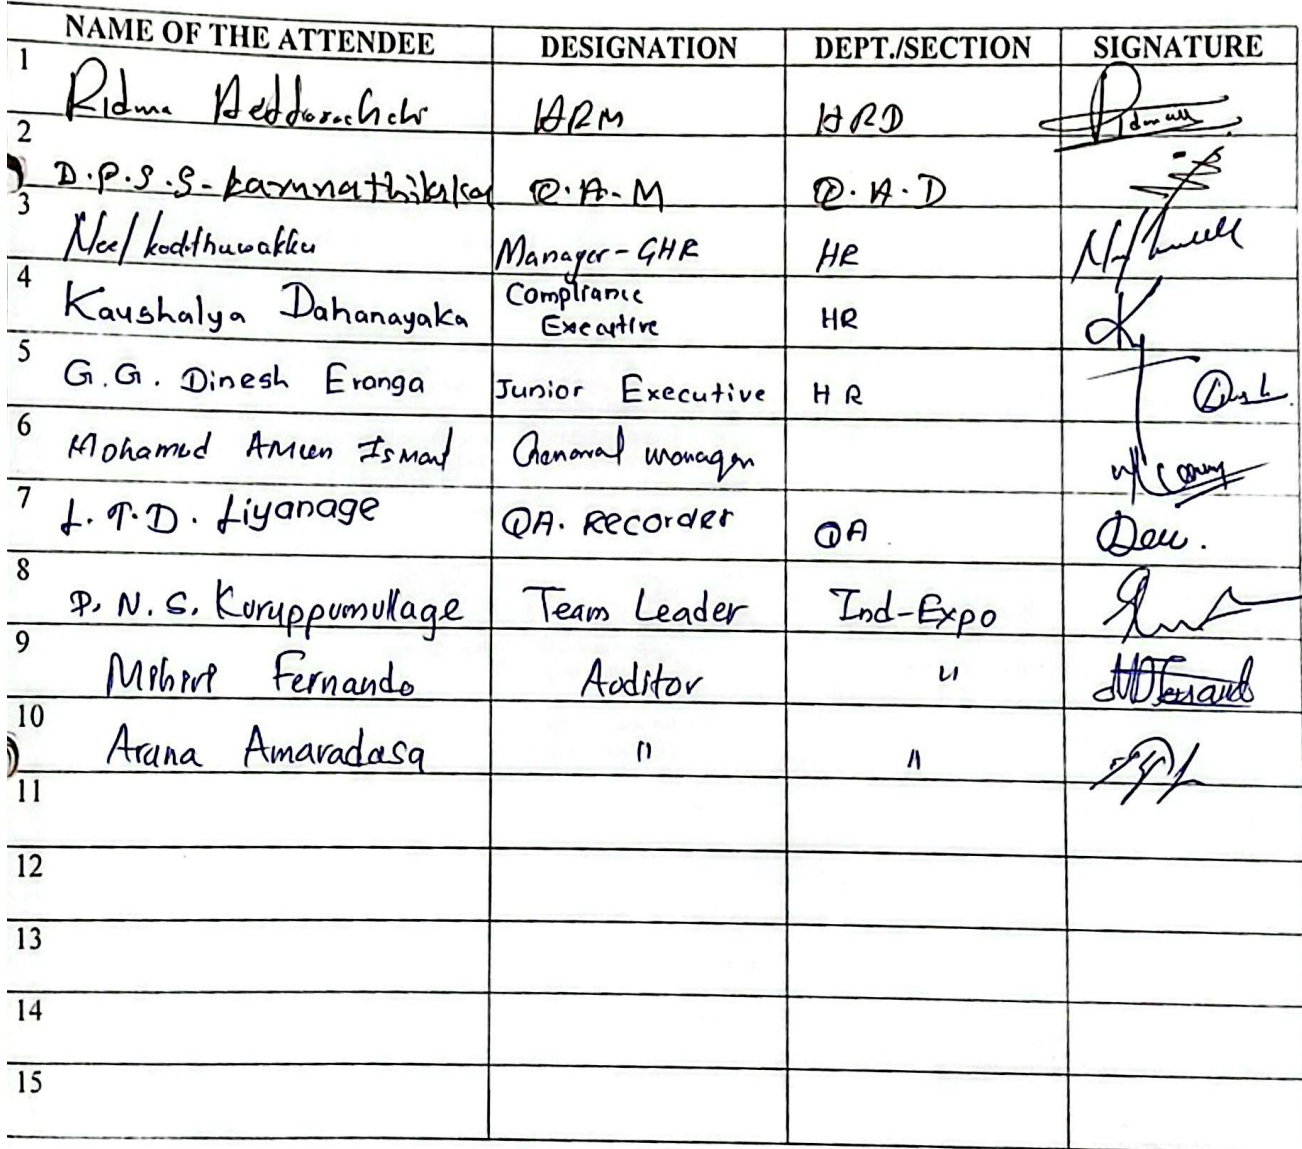 NAME OF THE ATTENDEE DESIGNATION DEPT./SECTION SIGNATURE
1 Ridma HRM HRD
2 D.P.S.S- Q.A-M Q.A.D
3 Neel kodithuwakku Manager-GHR HR
4 Kaushalya Dahanayaka Compliance Executive HR
5 G.G. Dinesh Eranga Junior Executive HR
6 Mohamed Ameen Ismail General manager
7 L.T.D. Liyanage QA. Recorder QA
8 P. N. S. Kuruppumullage Team Leader Ind-Expo
9 Mihiri Fernando Auditor "
10 Aruna Amaradasa " "
11
12
13
14
15